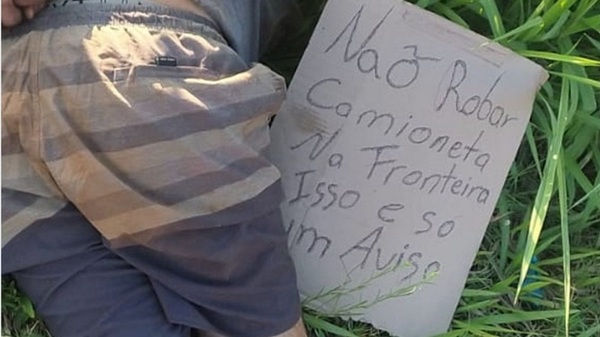 Não Robar
Camioneta
Na Fronteira
Isso e so
um Aviso